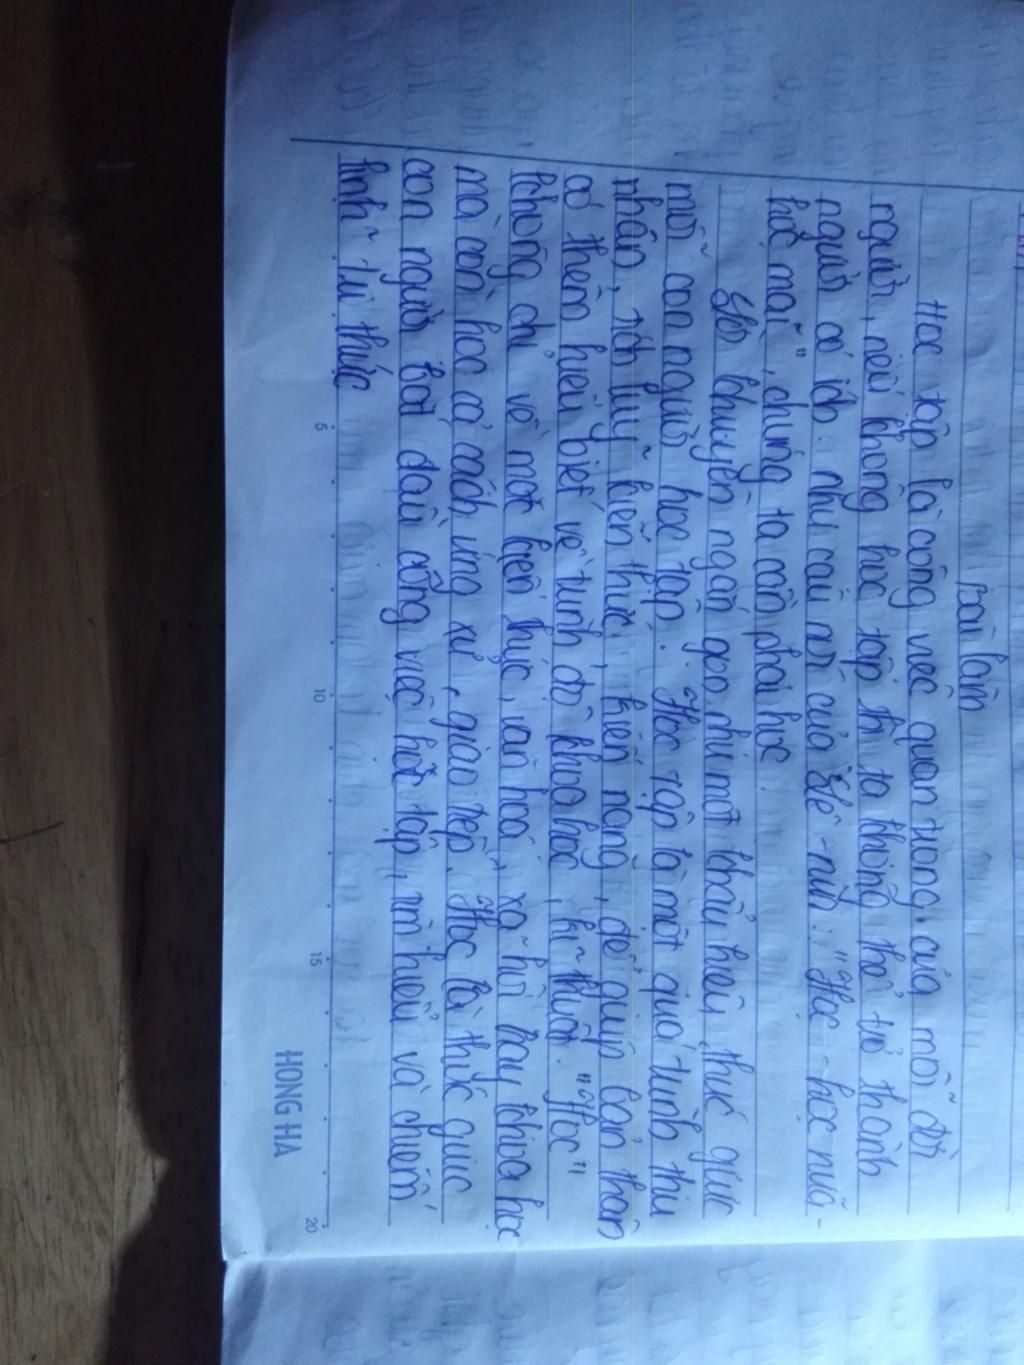 Bài làm
Học tập là công việc quan trọng của mỗi đời
người, nếu không học tập thì ta không thể trở thành
người có ích. như câu nói của Lê-nin: "Học - học nữa -
học mãi", chúng ta cần phải học.
chuyện ngắn gọn như một khẩu hiệu, thúc giục
mỗi con người học tập. Học tập là một quá trình thu
nhận, tích luỹ kiến thức, kiến năng, để giúp bản thân
có thêm hiểu biết về trình độ khoa học, kĩ thuật. "Học"
không chỉ về mặt kiến thức, văn hoá, xã hội hay khoa học
mà còn học cả cách ứng xử, giao tiếp. Học là thúc giục
con người bắt đầu công việc học tập, tìm hiểu và chiếm
lĩnh tri thức
5
10
15
20
HONG HA